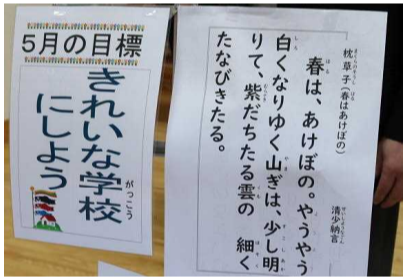 5月の目標
きれいな学校
にしよう
枕草子(春はあけぼの)
清少納言
春は、あけぼの。やうやう
白くなりゆく山ぎは、少し明
りて、紫だちたる雲の 細く
たなびきたる。